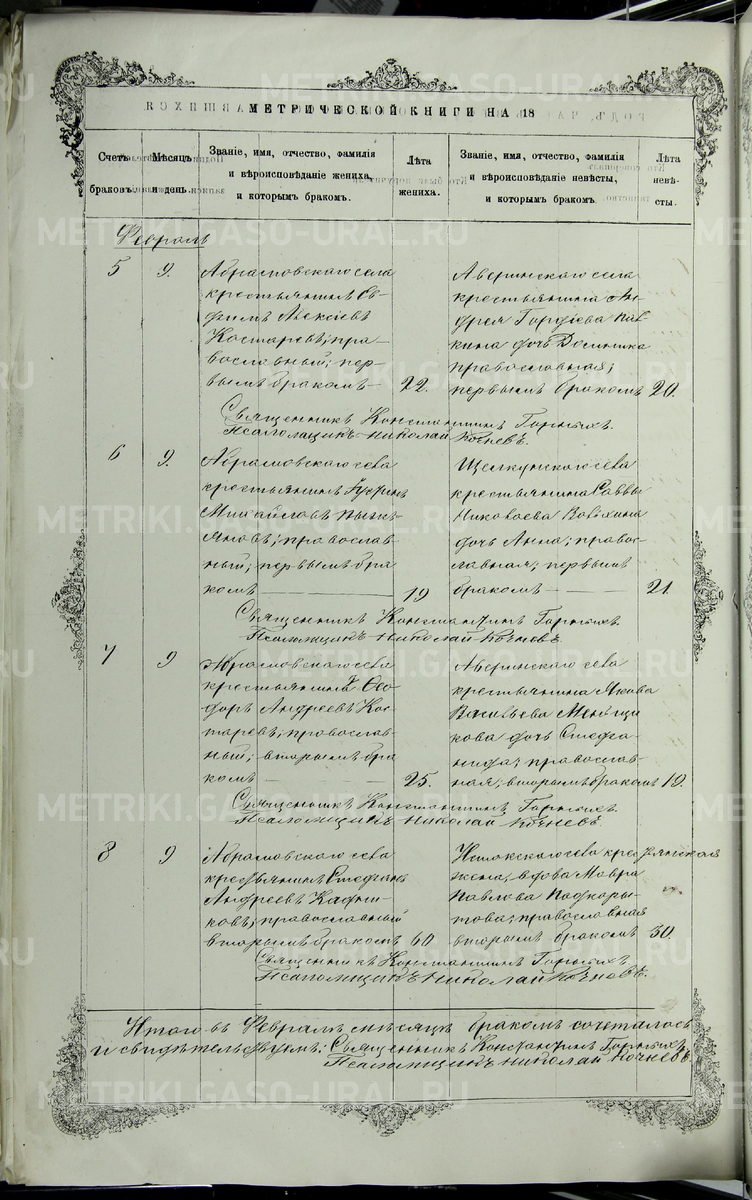 МЕТРИЧЕСКОЙ КНИГИ НА 18
Счетъ браковъ.
Мѣсяцъ и день.
Званіе, имя, отчество, фамилія и вѣроисповѣданіе жениха, и которымъ бракомъ.
Лѣта жениха.
Званіе, имя, отчество, фамилія и вѣроисповѣданіе невѣсты, и которымъ бракомъ
Лѣта невѣсты.
Февраль
5 9. Абрамовскаго села
крестьянинъ Ев-
фимъ Алексіевъ
Костаревъ; пра-
вославный; пер-
вымъ бракомъ 22.
Аверинскаго села
крестьянина Ан-
дрея Гордіева
дочь Домника
православная;
первымъ бракомъ 20.
Священникъ Константинъ
Псаломщикъ Николай Кочневъ.
6 9. Абрамовскаго села
крестьянинъ
Михайловъ
православ-
ный; первымъ бра
комъ 19
Щелкунскаго села
крестьянина Саввы
Николаева
дочь Анна; право-
славная; первымъ
бракомъ 21
Священникъ Константинъ
Псаломщикъ Николай Кочневъ.
7 9 Абрамовскаго села
крестьянинъ Фео-
доръ Андреевъ Кос-
таревъ; православ-
ный; вторымъ бра
комъ 25.
Аверинскаго села
крестьянина Якова
Васильева Меньщи
кова дочь Стефа-
нида; православ-
ная, вторымъ бракомъ 19.
Священникъ Константинъ
Псаломщикъ Николай Кочневъ
8 9 Абрамовскаго села
крестьянинъ Стефанъ
Андреевъ
православный
вторымъ бракомъ 60.
села крестьянская
жена, вдова Мавра
Павлова Подкоры-
това; православная
вторымъ бракомъ 50.
Священникъ Константинъ
Псаломщикъ Николай Кочневъ.
Итого въ Февралѣ мѣсяцѣ бракомъ сочеталось
и свидѣтельствуемъ: Священникъ Константинъ
Псаломщикъ Николай Кочневъ
METRIKI.GASO-URAL.RU